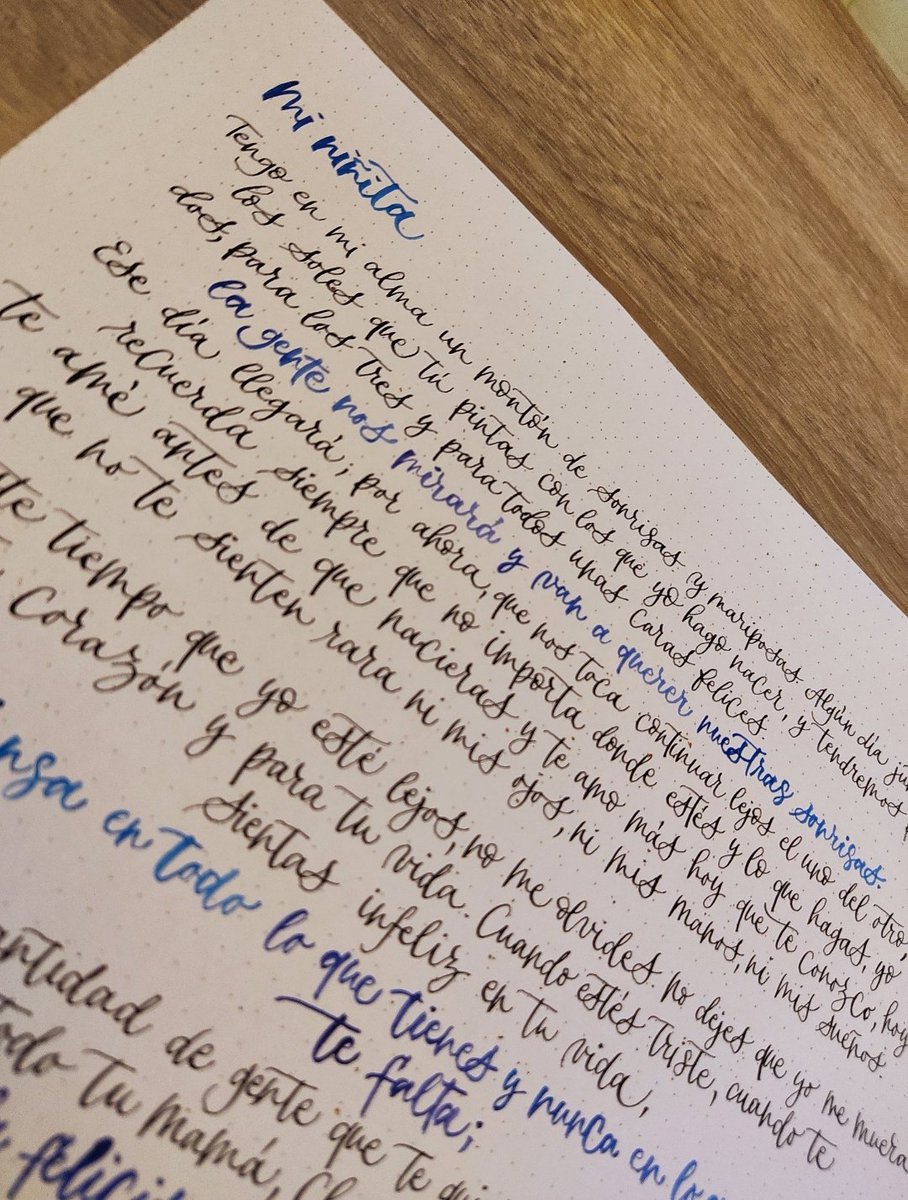 mi niñita
Tengo en mi alma un montón de sonrisas y mariposas Algún día
los soles que tú pintas con los que yo hago nacer, y tendremos
dos, para los tres y para todos unas caras felices
la gente nos mirará y van a querer nuestras sonrisas.
Ese día llegará; por ahora, que nos toca continuar lejos el uno del otro,
recuerda siempre que no importa donde estés y lo que hagas, yo
te amé antes de que nacieras y te amo más hoy que te conozco, hoy
que no te sienten rara ni mis ojos, ni mis manos, ni mis sueños.
tiempo que yo esté lejos, no me olvides no dejes que yo me muera
corazón y para tu vida. Cuando estés triste, cuando te
sientas infeliz en tu vida,
en todo lo que tienes y nunca en lo
te falta;
de gente que te
tu mamá,